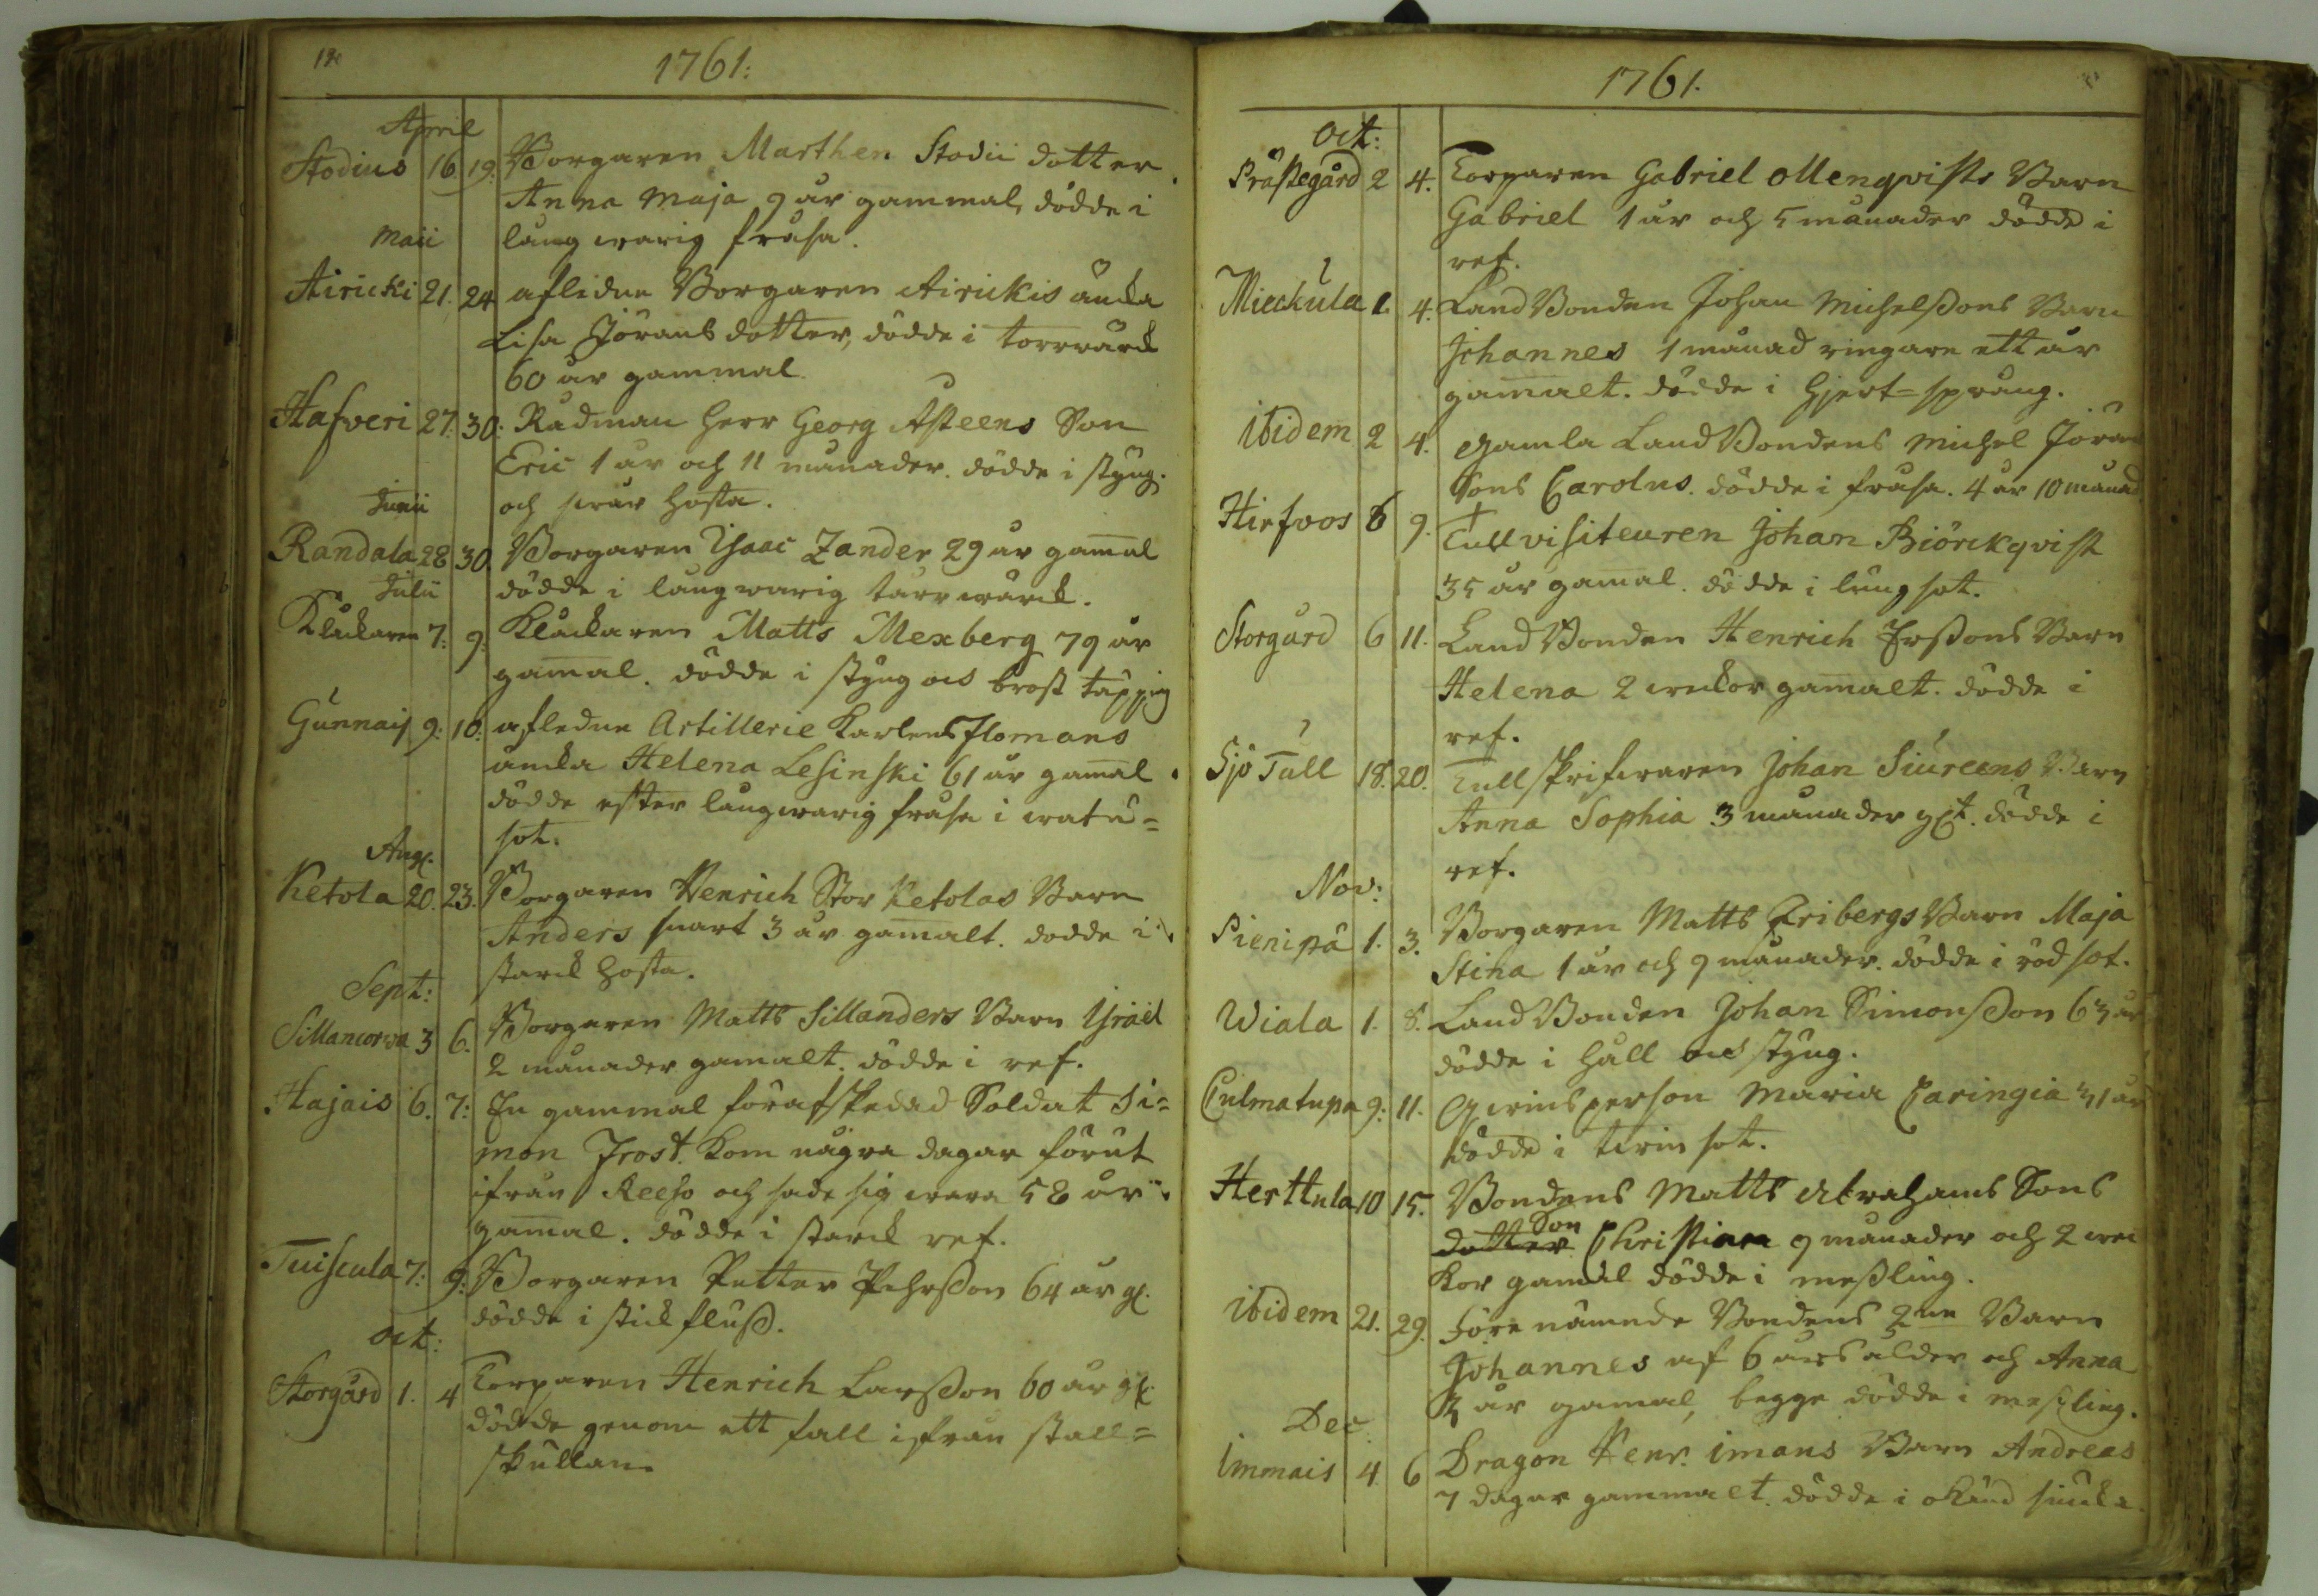 1761:
April
Stodius 16. 19. Borgaren Marthen Stodii dotter
Anna Maja 9 år gammal, dödde i
långwarig fråsa.
Maii
Airicki 21. 24 aflidne Borgaren Airickis äncka
Lisa Jörans dotter, dödde i torrwärck
60 år gammal
Hafveri 27. 30. Rådman Herr Georg Asteens Son
Eric 1 år och 11 månader. dödde i styng.
och swår hosta.
Junii
Randala 28 30. Borgaren Isaac Zander 29 år gamal
dödde i långwarig tårrwärck.
Julii
Klåckaren 7. 9. Klåckaren Matts Mexberg 79 år
gamal. dödde i styng och bröst täpping
Gunnais 9. 10. afledne Artillerie Karlens Flomans
äncka Helena Lesinski 61 år gamal
dödde efter långwarig fråsa i watu=
sot.
Aug.
Ketola 20. 23. Borgaren Henrich Stor Ketolas Barn
Anders snart 3 år gamalt. dödde i
starck hosta.
Sept:
Sillancorva 3 6. Borgaren Matts Sillanders Barn Israel
2 månader gamalt. dödde i ref.
Hajais 6. 7. En gammal förafskedad Soldat Si=
mon Frost. kom några dagar förut
ifrån Reeso och sade sig wara 58 år
gamal. dödde i starck ref.
Tuiscula 7. 9. Borgaren Petter Pehrsson 64 år gl.
dödde i stickfluss.
Oct:
Storgård 1. 4 Torparen Henrich Larsson 60 år gl.
dödde genom ett fall ifrån stall=
skullan
1761.
Oct:
Prästegård 2 4. Torparen Gabriel Menqvists Barn
Gabriel 1 år och 5 månader dödde i
ref.
Mieckula 1. 4. Land Bonden Johan Michelssons Barn
Johannes 1 månad ringare ett år
gamalt. dödde i Hjert=språng.
ibidem 2 4. gamla Land Bondens Michel Jöran
Sons Carolus. dödde i fråsa. 4 år 10 månad
Hirfvos 6 9. Tullvisiteuren Johan Biörckqvist
35 år gamal. dödde i lungsot.
Storgård 6 11. Land Bonden Henrich Erssons Barn
Helena 2 weckor gamalt. dödde i
ref.
Sjö Tull 18. 20. Tullskrifwaren Johan Siureens Barn
Anna Sophia 3 månader glt. dödde i
ref.
Nov:
Pienipä 1. 3. Borgaren Matts Fribergs Barn Maja
Stina 1 år och 9 månader. dödde i rödsot.
Wiala 1. 8. Land Bonden Johan Simonsson 63 år
dödde i håll och styng.
Culmatupa 9. 11. Qwinsperson Maria Caringia 31 år
dödde i twinsot.
Herttula 10 15. Bondens Matts Abrahams Sons
dotter Son Christian 9 månader och 2 wec
kor gamal dödde i messling.
ibidem 21. 29. Förenämnde Bondens 2ne Barn
Johannes af 6 års ålder och Anna
3 år gamal, begge dödde i messling.
Dec
Immais 4. 6 Dragon Henr. imans Barn Andreas
7 dagar gammalt. dödde i okänd siucka.